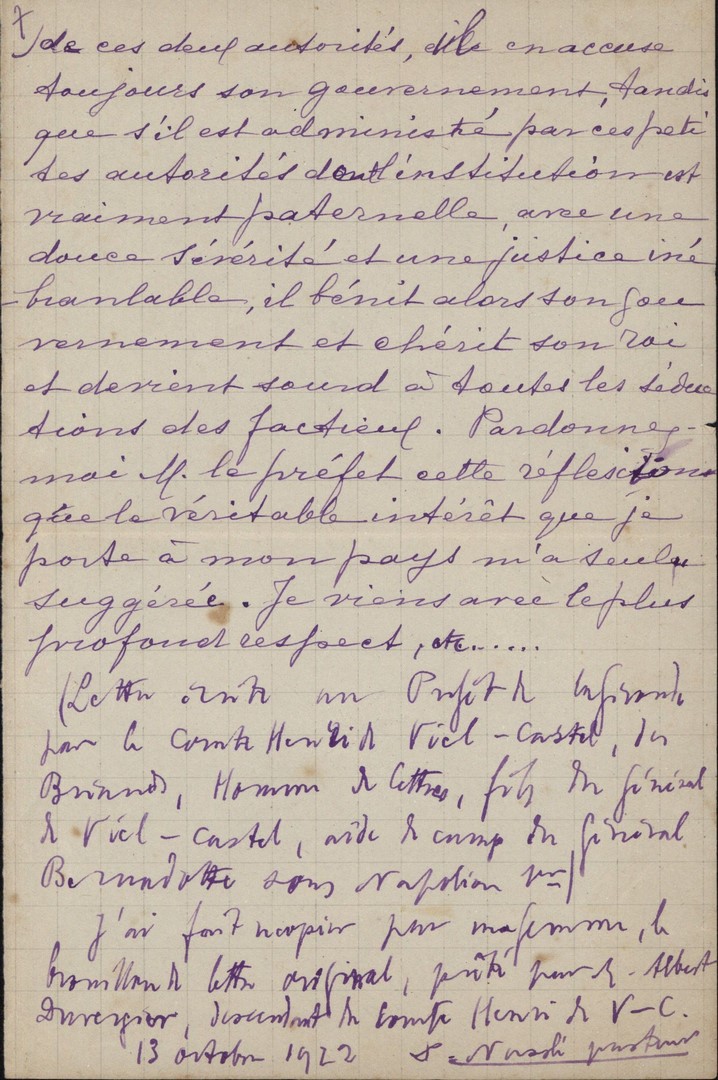 de ces deux autorités, il en accuse
toujours son gouvernement, tandis
que s'il est administré par ces peti
tes autorités dont l'institution est
vraiment paternelle, avec une
douce sévérité et une justice iné
-branlable, il bénit alors son gou
vernement et chérit son roi
et devient sourd à toutes les séduc
tions des factieux. Pardonnez-
moi M. le préfet cette réflexion
que le véritable intérêt que je
porte à mon pays m'a seul
suggérée. Je viens avec le plus
profond respect, etc......
(Lettre écrite au Préfet de la Gironde
par le Comte Henri de Viel-Castel, des
Briands, Homme de lettres, fils du général
de Viel-Castel, aide de camp du général
Bernadotte sous Napoléon 1er)
J'ai fait recopier par ma femme, le
brouillon de lettre original, prêté par M. Albert
Duvergier, descendant du Comte Henri de V-C.
13 octobre 1922 pasteur